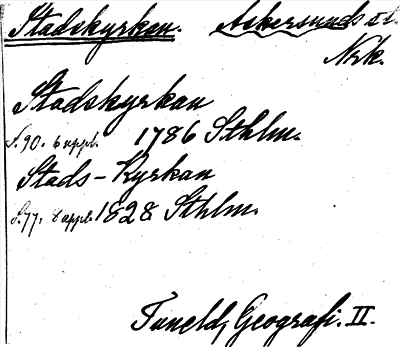 Stadskyrkan. Askersunds st.
Nrk.
Stadskyrkan
S. 90. 6 uppl. 1786 Sthlm.
Stads-Kyrkan
S. 77. 8 uppl. 1828 Sthlm.
Tuneld, Geografi. II.